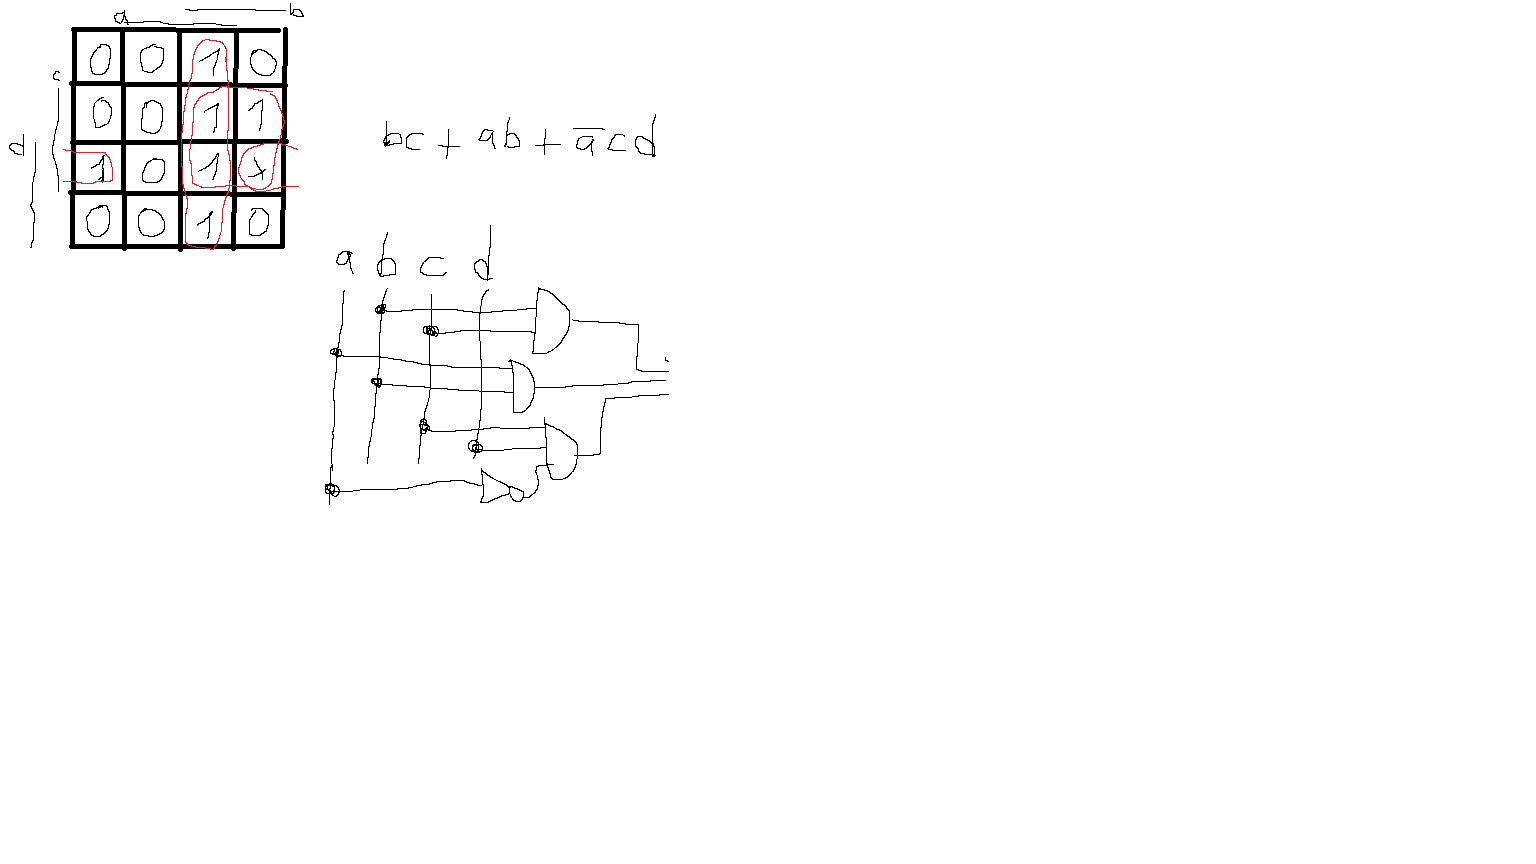 a b
0 0 1 0
c
0 0 1 1
d
1 0 1 x
0 0 1 0
bc + ab + a̅cd
a b c d